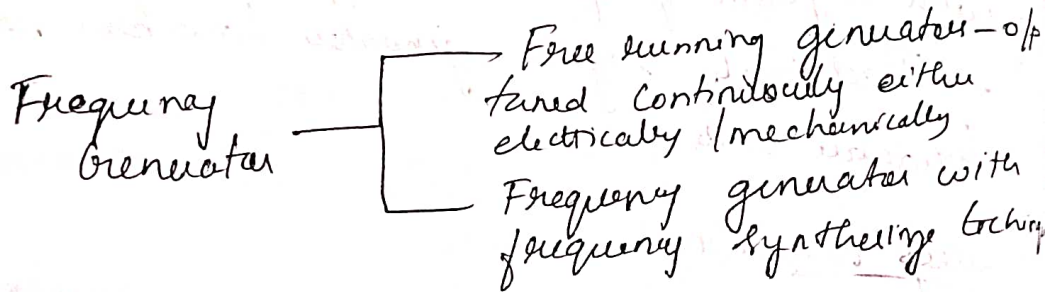 Frequency
Generator
Free running generator - o/p
tuned continuously either
electrically / mechanically
Frequency generator with
frequency synthesize